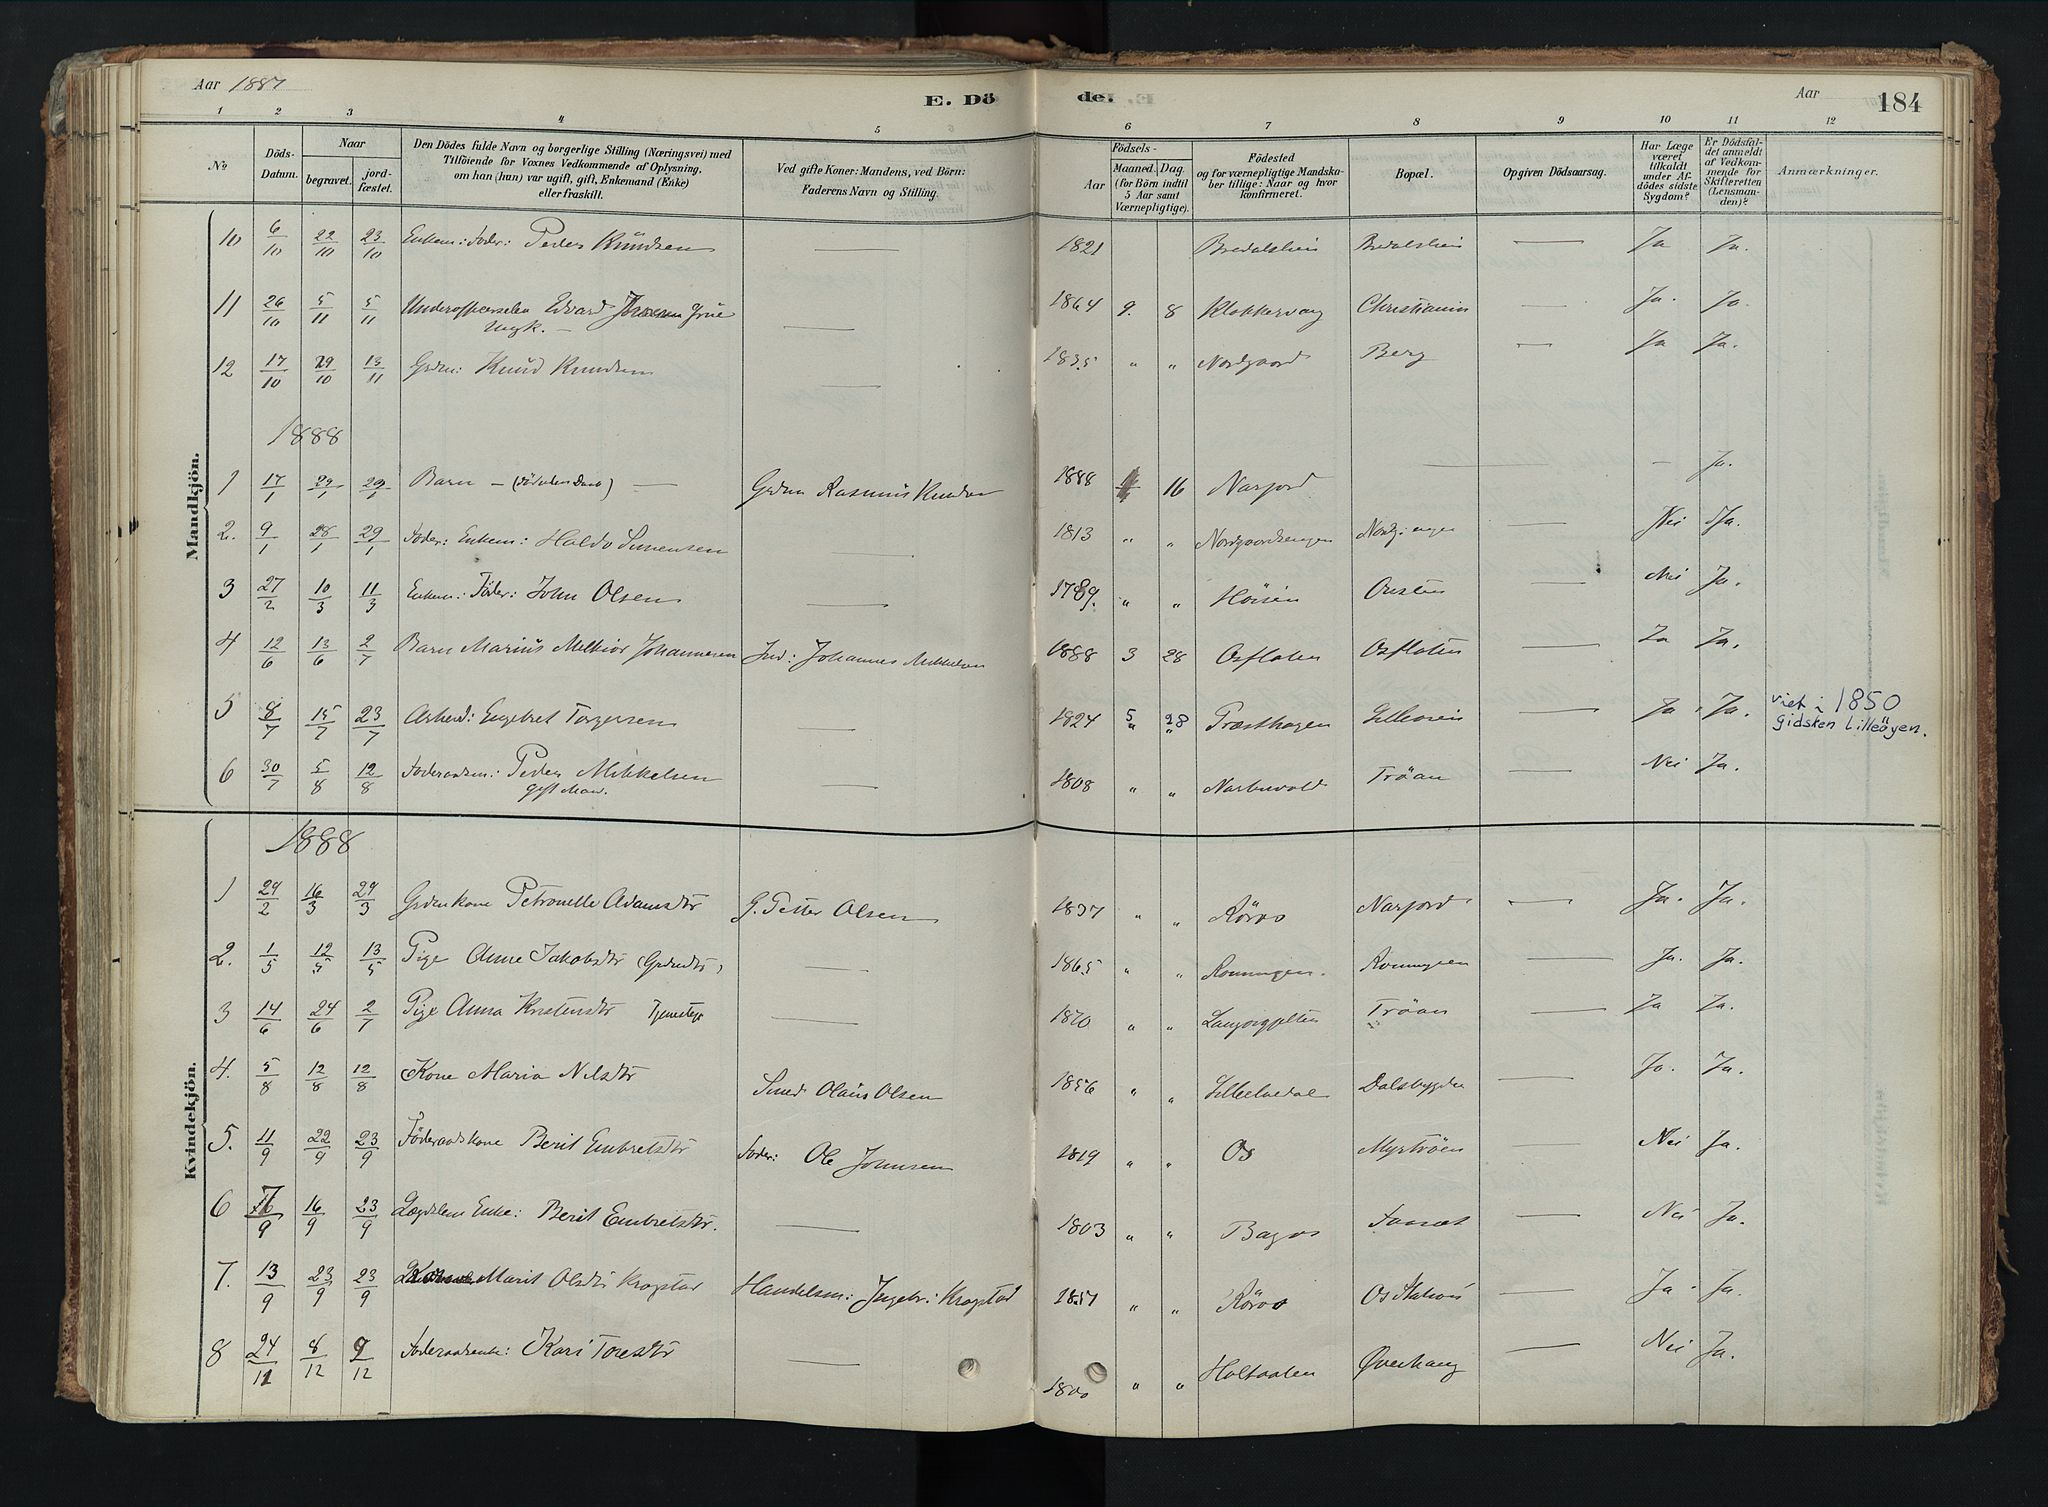 Aar 1887
E. Döde.
Aar
184
1 2 3 4 5 6 7 8 9 10 11 12
No
Döds-Datum.
Naar
begravet.
jord-fæstet.
Den Dödes fulde Navn og borgerlige Stilling (Næringsvei) med
Tilföiende for Voxnes Vedkommende af Oplysning,
om han (hun) var ugift, gift, Enkemand (Enke)
eller fraskilt.
Ved gifte Koner: Mandens, ved Börn:
Faderens Navn og Stilling.
Födsels-
Aar
Maaned. Dag.
(for Börn indtil
5 Aar samt
Værnepligtige).
Födested
og for værnepligtige Mandska-
ber tillige: Naar og hvor
konfirmeret.
Bopæl.
Opgiven Dödsaarsag.
Har Læge
været
tilkaldt
under Af-
dödes sidste
Sygdom?
Er Dödsfal-
det anmeldt
af Vedkom-
mende for
Skifteretten
(Lensman-
den)?
Anmærkninger.
Mandkjön.
10 6/10 22/10 23/10 Enkem: Foder: Peder Knudsen — 1821 Bredalslien Bredalslien — Ja Ja.
11 26/10 5/11 5/11 Underofficerselev Edvard Grue — 1864 9. 8 Klokkervang Christiania — Ja. Ja.
Ungk. —
12 17/10 29/10 13/11 Grdm: Knud Knudsen — 1835 " " Nordgaard Berg — Ja Ja.
1888
1 17/1 29/1 29/1 Barn — — Grdm Rasmus Knudsen 1888 16 Narjord — — — Ja.
2. 9/1 28/1 29/1 Foder: Enkem: Haldo Simensen — 1813 " " Nordgaardsengen — Nei Ja.
3 27/2 10/3 11/3 Enkem: Föder: John Olsen — 1789. " " — Nei Ja.
4 12/6 13/6 2/7 Barn Marius Melkior Johannesen Ind: Johannes Mikkelsen 1888 3 28 Osfloten Osfloten — Ja Ja.
5 8/7 15/7 23/7 Arbeid: Engebret Torgersen — 1824 5 28 Præsthagen Lilleøien — Ja. Ja. viet i 1850
gidsken Lilleøyen.
6 30/7 5/8 12/8 Foderaadsm: Peder Mikkelsen — 1808 " " Narbuvold Tröan — Nei Ja.
gift Man.
Kvindekjön.
1888
1 29/2 16/3 29/3 Grdm kone Petronelle Adamsdtr G. Petter Olsen 1837 " " Röros Narjord — Ja. Ja.
2. 1/5 12/5 13/5 Pige Anne Jakobsdtr (Grdmdtr) — 1865 " " Ronningen. Ronningen — Ja. Ja.
3 14/6 24/6 2/7 Pige Anna Kristensdtr Tjenestepi — 1870 " " Tröan — Ja Ja.
4. 5/8 12/8 12/8 Kone Maria Nilsdtr Smed Olaus Olsen 1856 " " Lilleelvedal Dalsbygden — Ja. Ja.
5. 11/9 22/9 23/9 Föderaadskone Berit Embretsdtr Foder: Ole Johnsen 1819 " " Os Myrtröen — Nei Ja.
6 16/9 23/9 Lægdslem Enke: Berit Embretsdtr. — 1803 " " — Nei Ja.
7. 13/9 23/9 23/9 Marit Olsdtr Krogstad Handelsm: Ingebr: Krogstad 1857 " " Röros Os Station — Ja Ja.
8 24/11 8/12 9/12 Foderaadsenke: Kari Toresdtr — 1800 " " Holtaalen Øverhaug — Nei Ja.